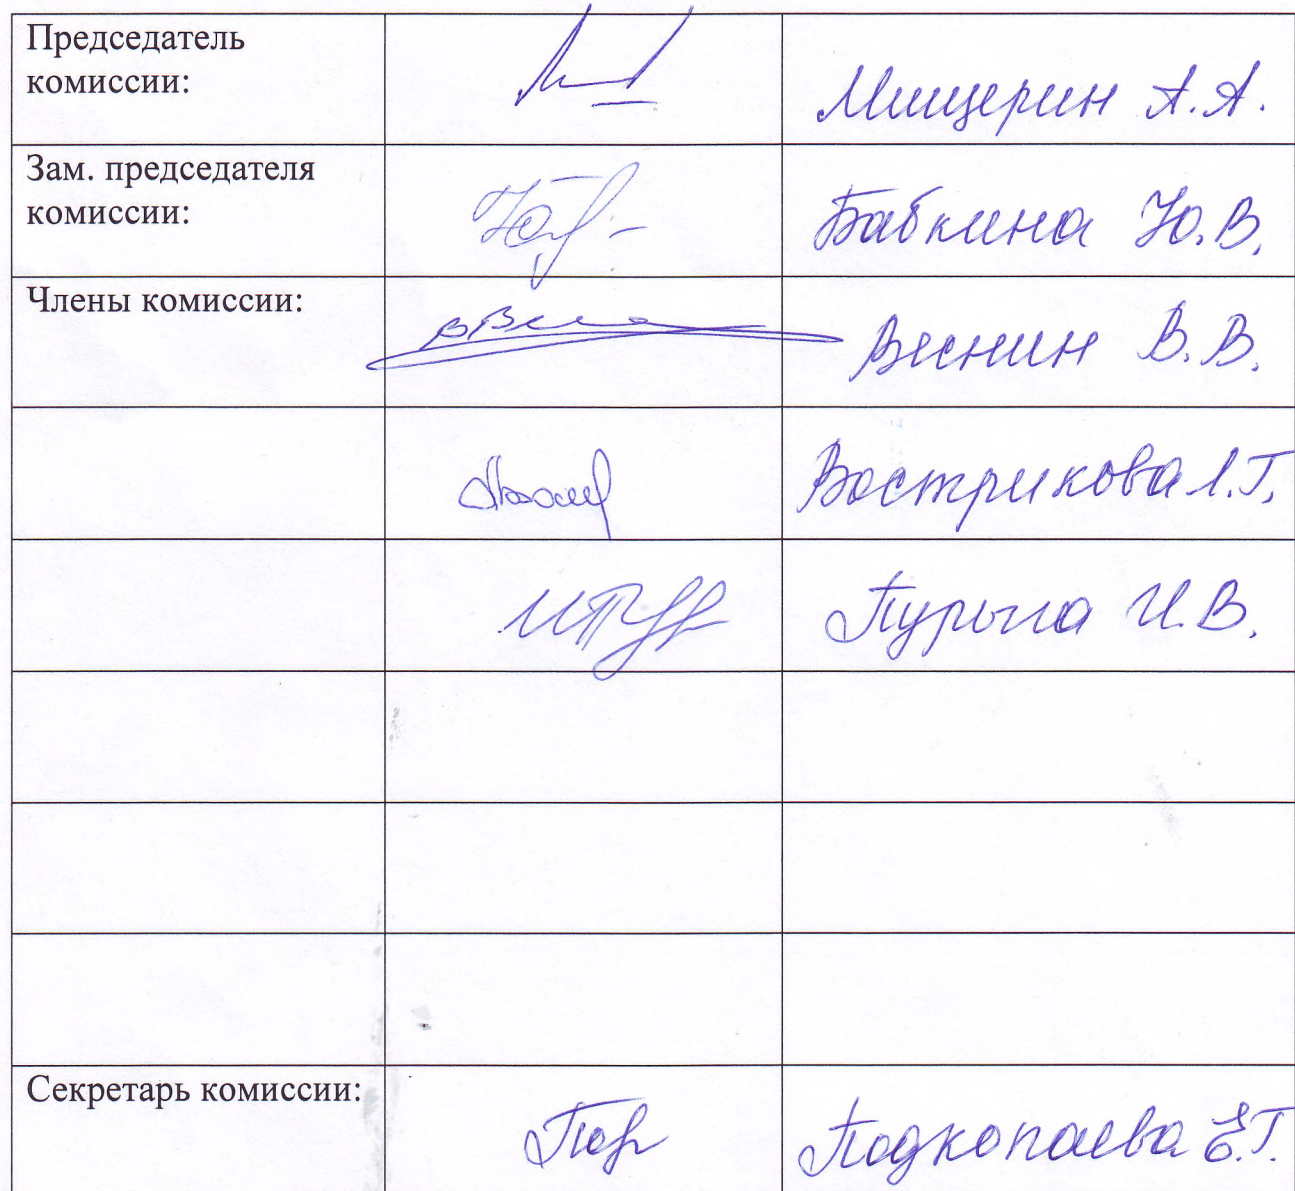 Председатель
комиссии:
Мищерин А.А.
Зам. председателя
комиссии:
Бабкина Ю.В.
Члены комиссии:
Веснин В.В.
Вострикова Л.Г.
И.В.
Секретарь комиссии:
Подкопаева Е.Г.